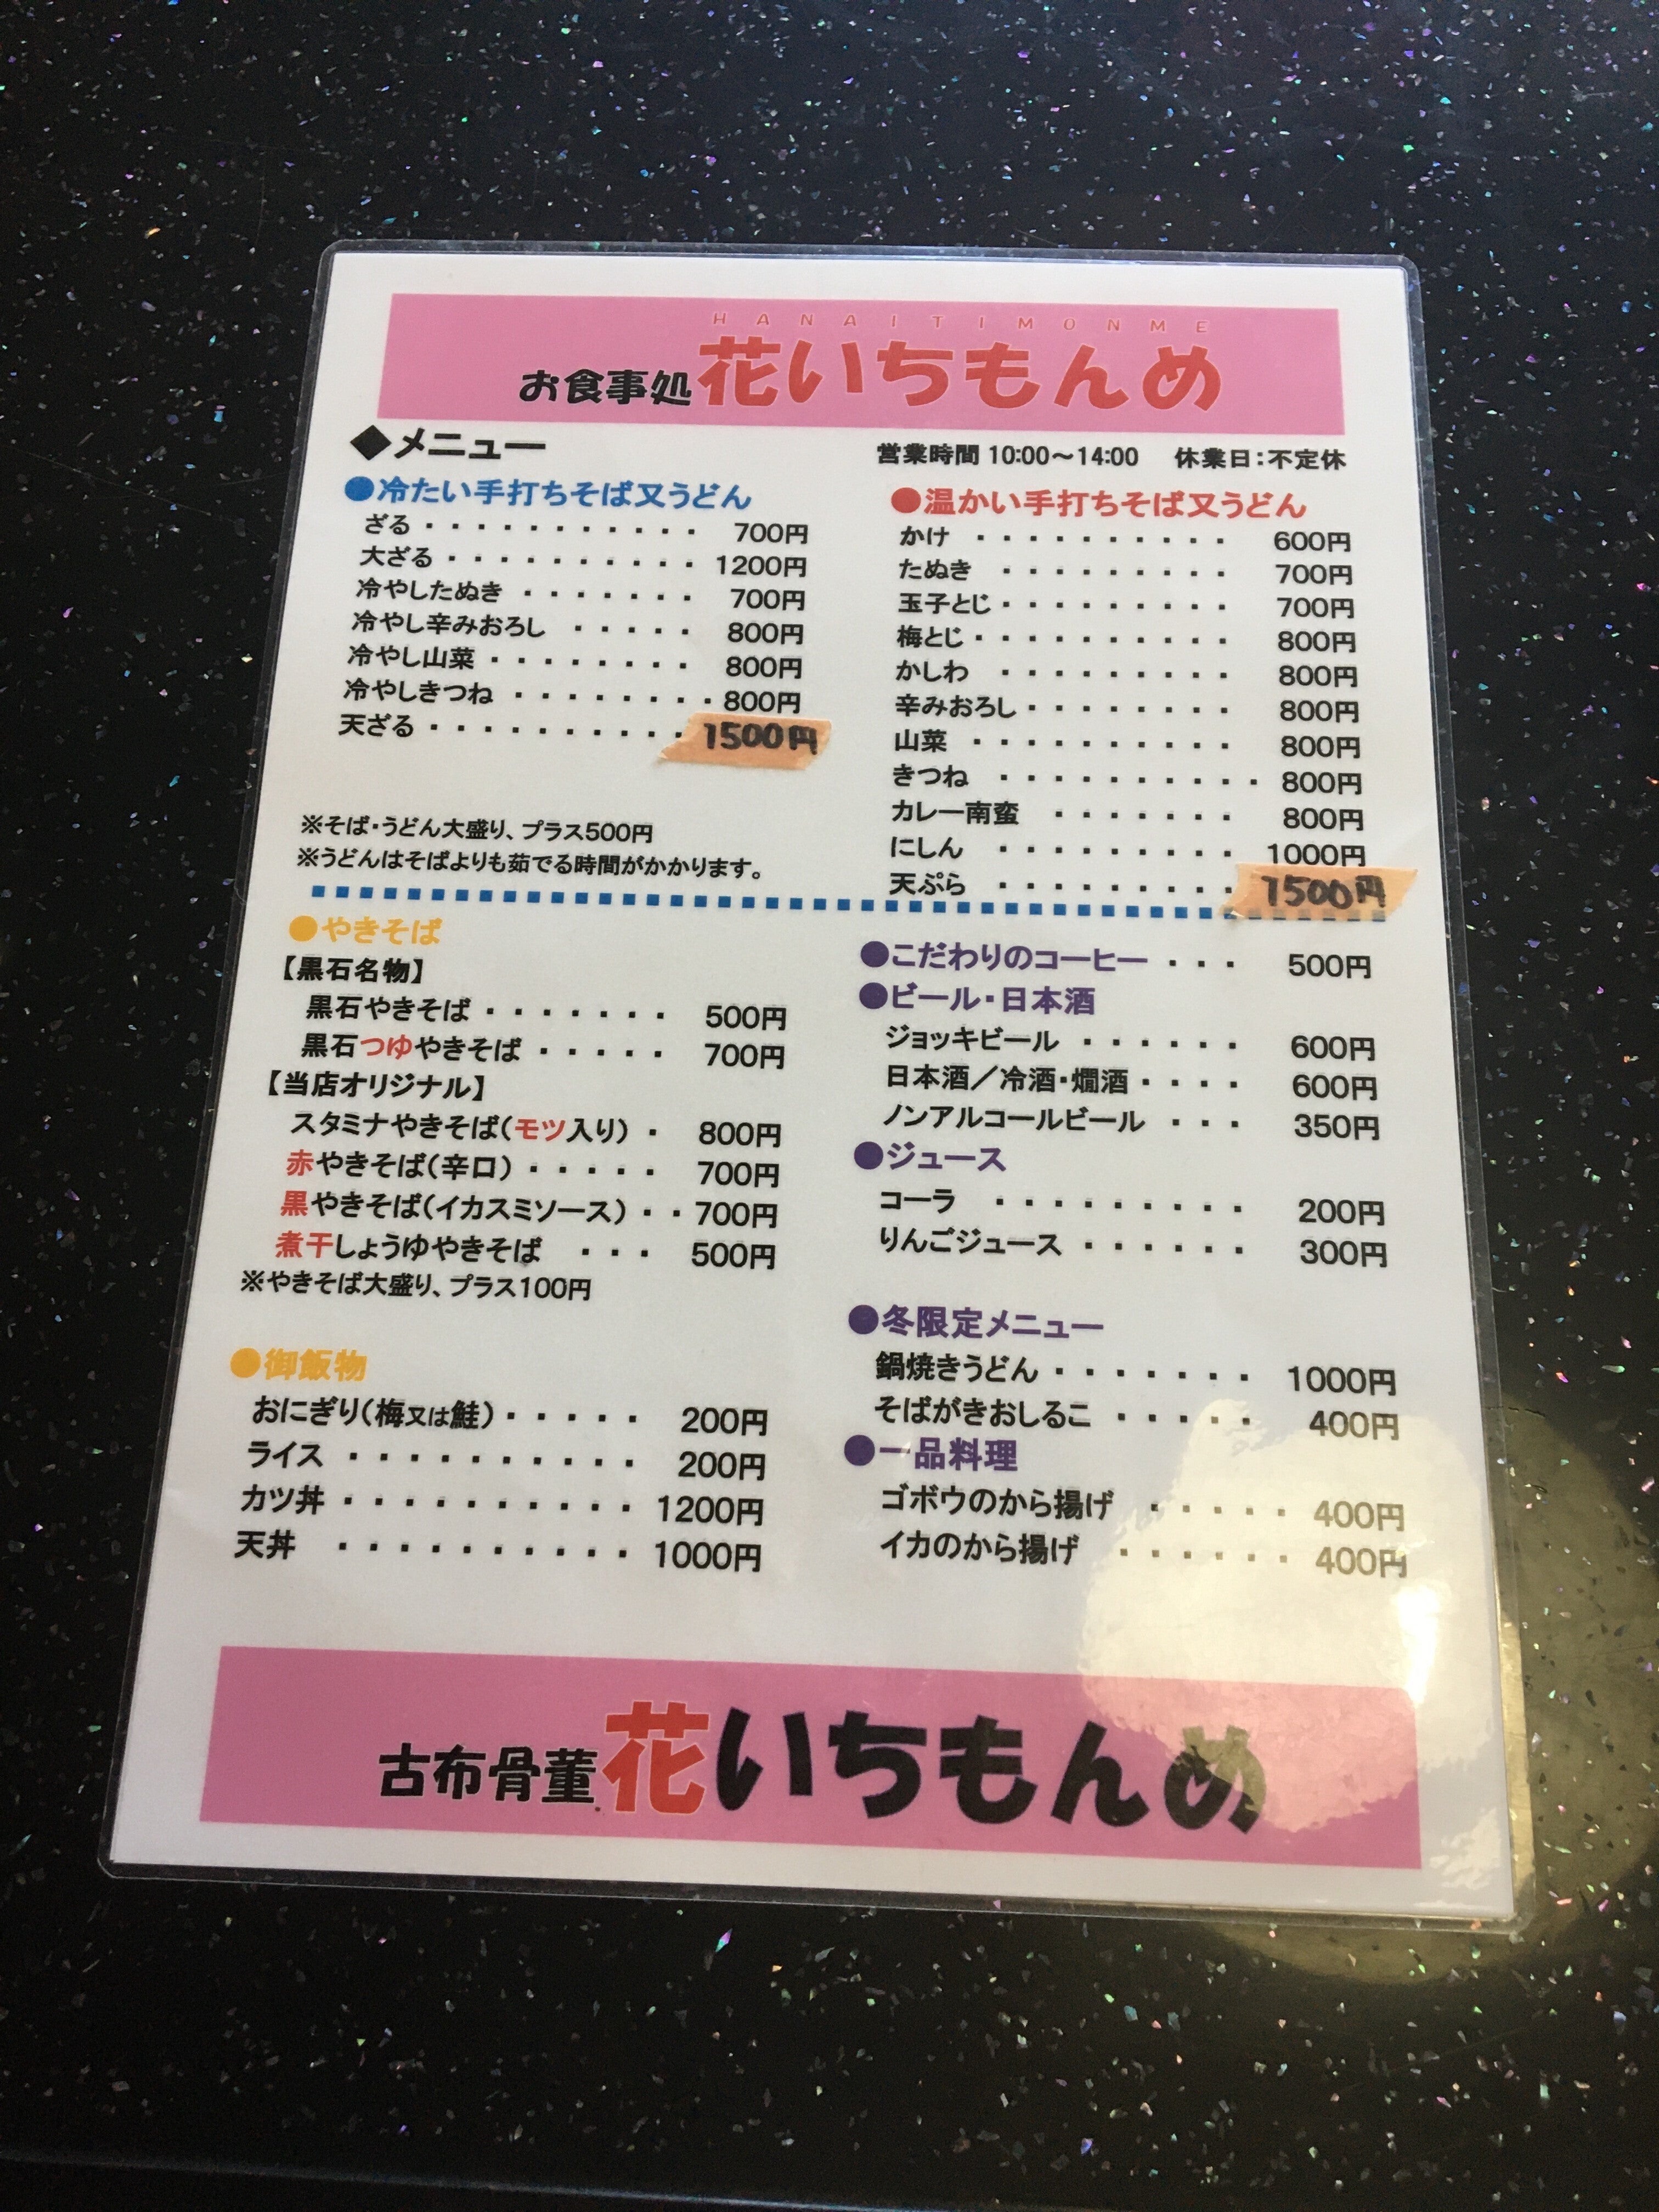 HANAITIMONME
お食事処花いちもんめ
◆メニュー
営業時間 10:00～14:00 休業日：不定休
●冷たい手打ちそば又うどん
ざる ・・・・・・・・・・・ 700円
大ざる ・・・・・・・・・・ 1200円
冷やしたぬき ・・・・・・・ 700円
冷やし辛みおろし ・・・・・ 800円
冷やし山菜 ・・・・・・・・ 800円
冷やしきつね ・・・・・・・・ 800円
天ざる ・・・・・・・・・・・ 1500円
※そば・うどん大盛り、プラス500円
※うどんはそばよりも茹でる時間がかかります。
●温かい手打ちそば又うどん
かけ ・・・・・・・・・・ 600円
たぬき ・・・・・・・・・ 700円
玉子とじ ・・・・・・・・・ 700円
梅とじ ・・・・・・・・・・ 800円
かしわ ・・・・・・・・・ 800円
辛みおろし ・・・・・・・・ 800円
山菜 ・・・・・・・・・・ 800円
きつね ・・・・・・・・・・ 800円
カレー南蛮 ・・・・・・・ 800円
にしん ・・・・・・・・・ 1000円
天ぷら ・・・・・・・・・ 1500円
●やきそば
【黒石名物】
黒石やきそば ・・・・・・・ 500円
黒石つゆやきそば ・・・・・ 700円
【当店オリジナル】
スタミナやきそば（モツ入り） ・ 800円
赤やきそば（辛口） ・・・・・ 700円
黒やきそば（イカスミソース） ・・ 700円
煮干しょうゆやきそば ・・・ 500円
※やきそば大盛り、プラス100円
●御飯物
おにぎり（梅又は鮭） ・・・・・ 200円
ライス ・・・・・・・・・・ 200円
カツ丼 ・・・・・・・・・・ 1200円
天丼 ・・・・・・・・・・ 1000円
●こだわりのコーヒー ・・・ 500円
●ビール・日本酒
ジョッキビール ・・・・・・ 600円
日本酒／冷酒・燗酒 ・・・・ 600円
ノンアルコールビール ・・・ 350円
●ジュース
コーラ ・・・・・・・・・ 200円
りんごジュース ・・・・・・ 300円
●冬限定メニュー
鍋焼きうどん ・・・・・・・ 1000円
そばがきおしるこ ・・・・・ 400円
●一品料理
ゴボウのから揚げ ・・・・・ 400円
イカのから揚げ ・・・・・・ 400円
古布骨董花いちもんめ